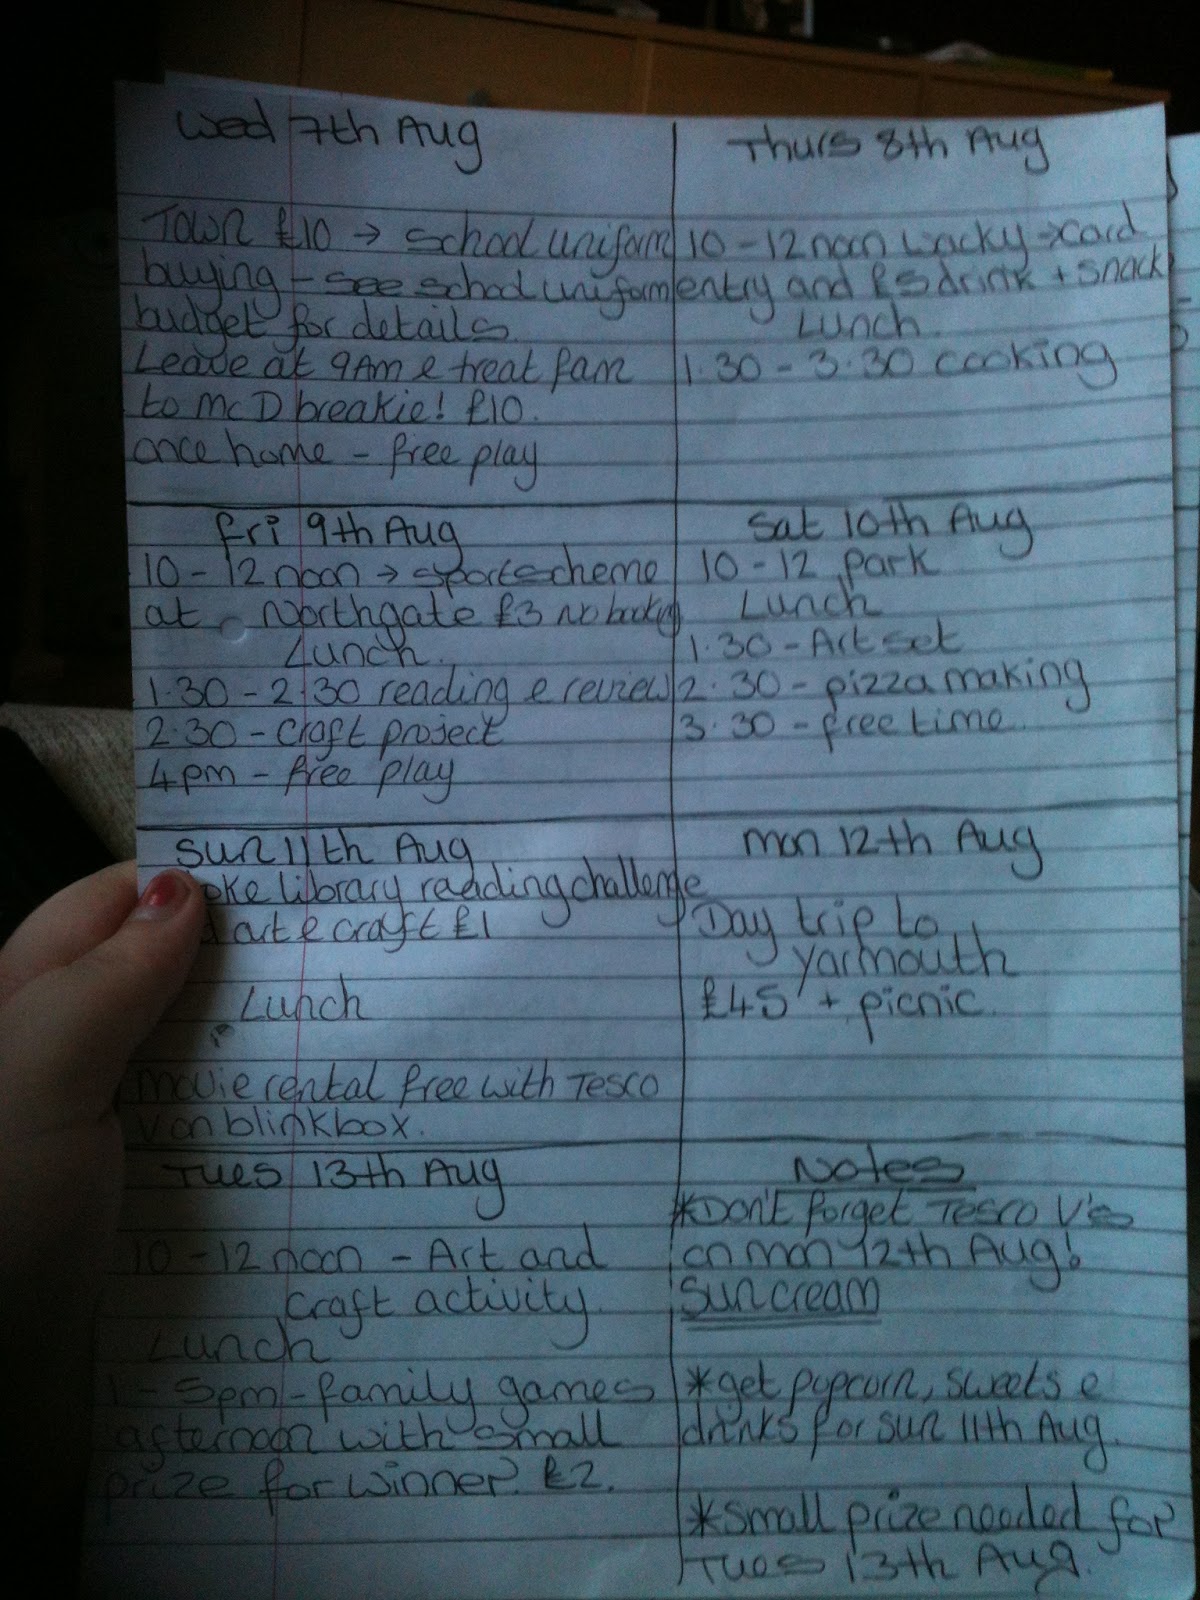 Wed 7th Aug
Town £10 → school uniform
buying - see school uniform
budget for details.
Leave at 9AM & treat fam
to McD breakie! £10.
once home - free play
Thurs 8th Aug
10-12 noon Wacky → card
entry and £5 drink + snack
Lunch.
1.30 - 3.30 cooking
Fri 9th Aug
10-12 noon → sportscheme
at Northgate £3 no booking
Lunch.
1.30 - 2.30 reading & review
2.30 - craft project
4pm - free play
Sat 10th Aug
10-12 park
Lunch
1.30 - Art set
2.30 - pizza making
3.30 - free time
Sun 11th Aug
library reading challenge
art & craft £1
Lunch
movie rental free with Tesco
V on blinkbox.
Mon 12th Aug
Day trip to
Yarmouth
£45 + picnic.
Tues 13th Aug
10-12 noon - Art and
craft activity.
Lunch
1-5pm - family games
afternoon with small
prize for winner. £2.
Notes
*Don't forget Tesco V's
on mon 12th Aug!
Suncream
*get popcorn, sweets &
drinks for sun 11th Aug.
*Small prize needed for
Tues 13th Aug.